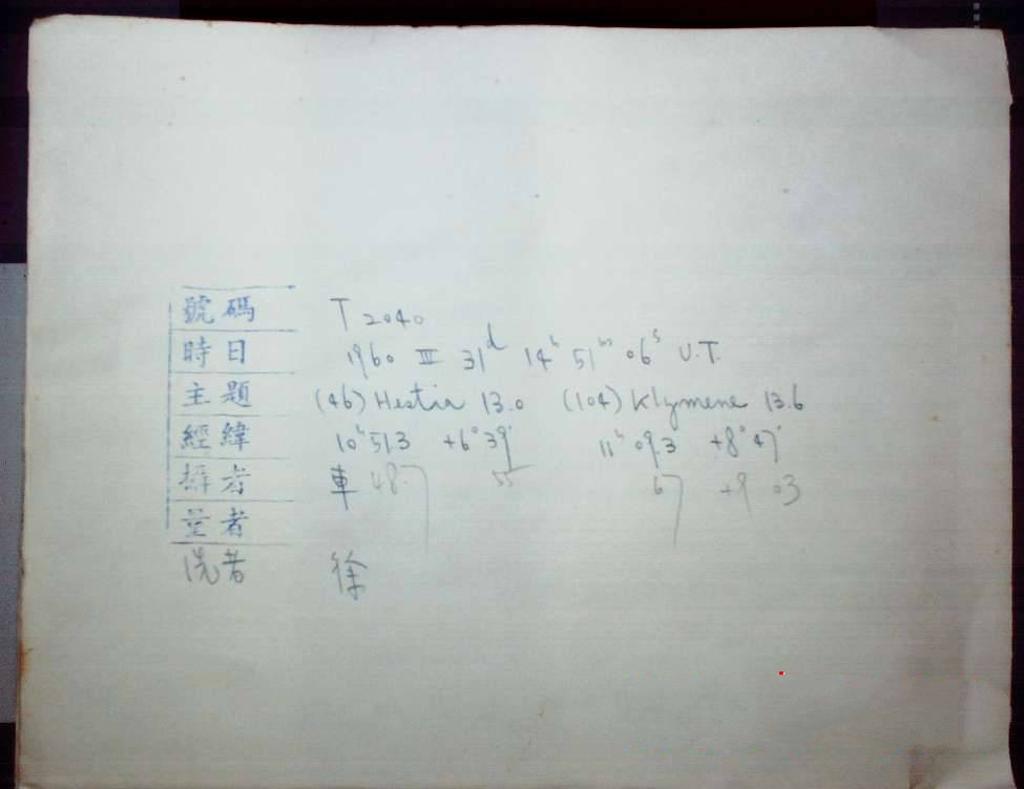 號碼 T 2040
時日 1960 III 31ᵈ 14ʰ 51ᵐ 06ˢ U.T.
主題 (46) Hestia 13.0 (104) Klymene 13.6
經緯 10ʰ 51.3 +6° 39' 11ʰ 09.3 +8° 47'
攝者 車 48.7 55 67 +9 03
量者
洗者 徐